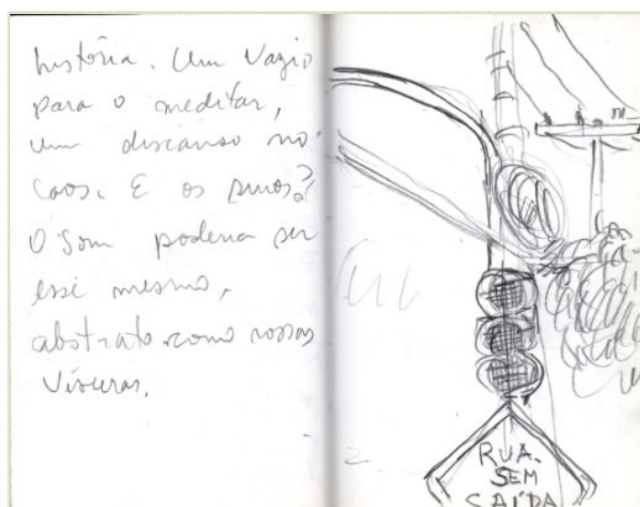 história. Um Vazio
para o meditar,
um discanso no
caos. E os sinos?
O Som poderia ser
esse mesmo,
abstrato como nossas
Vísceras.
RUA
SEM
SAÍDA